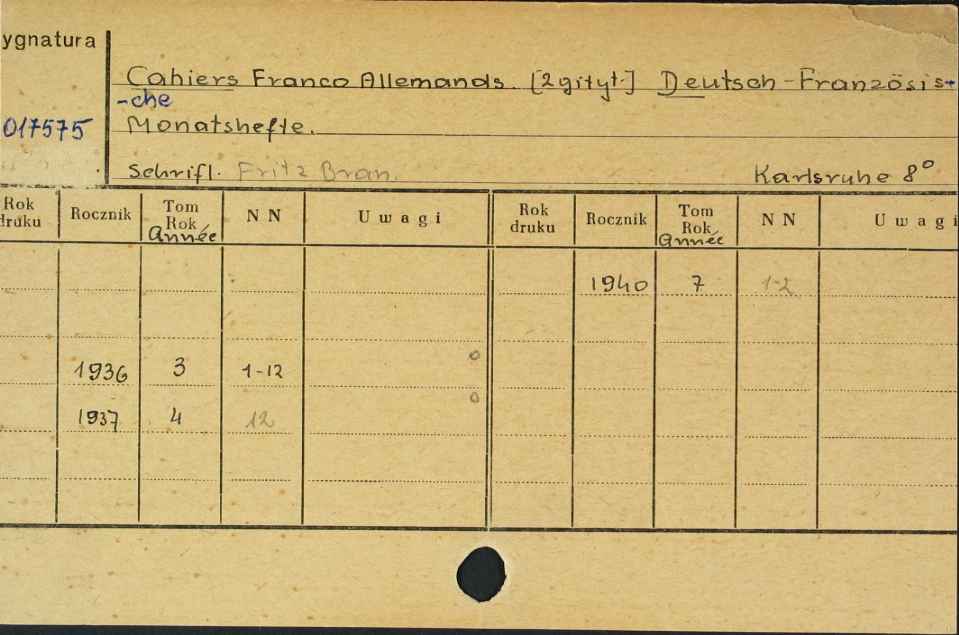 ygnatura
Cahiers Franco Allemands. [2gi tyt.] Deutsch-Französis-
-che
017575 Monatshefte.
Schriftl. Fritz Bran. Karlsruhe 8°
Rok druku Rocznik Tom Rok Année NN Uwagi Rok druku Rocznik Tom Rok Année NN Uwagi
1940 7 1-2
1936 3 1-12 o
1937 4 12 o